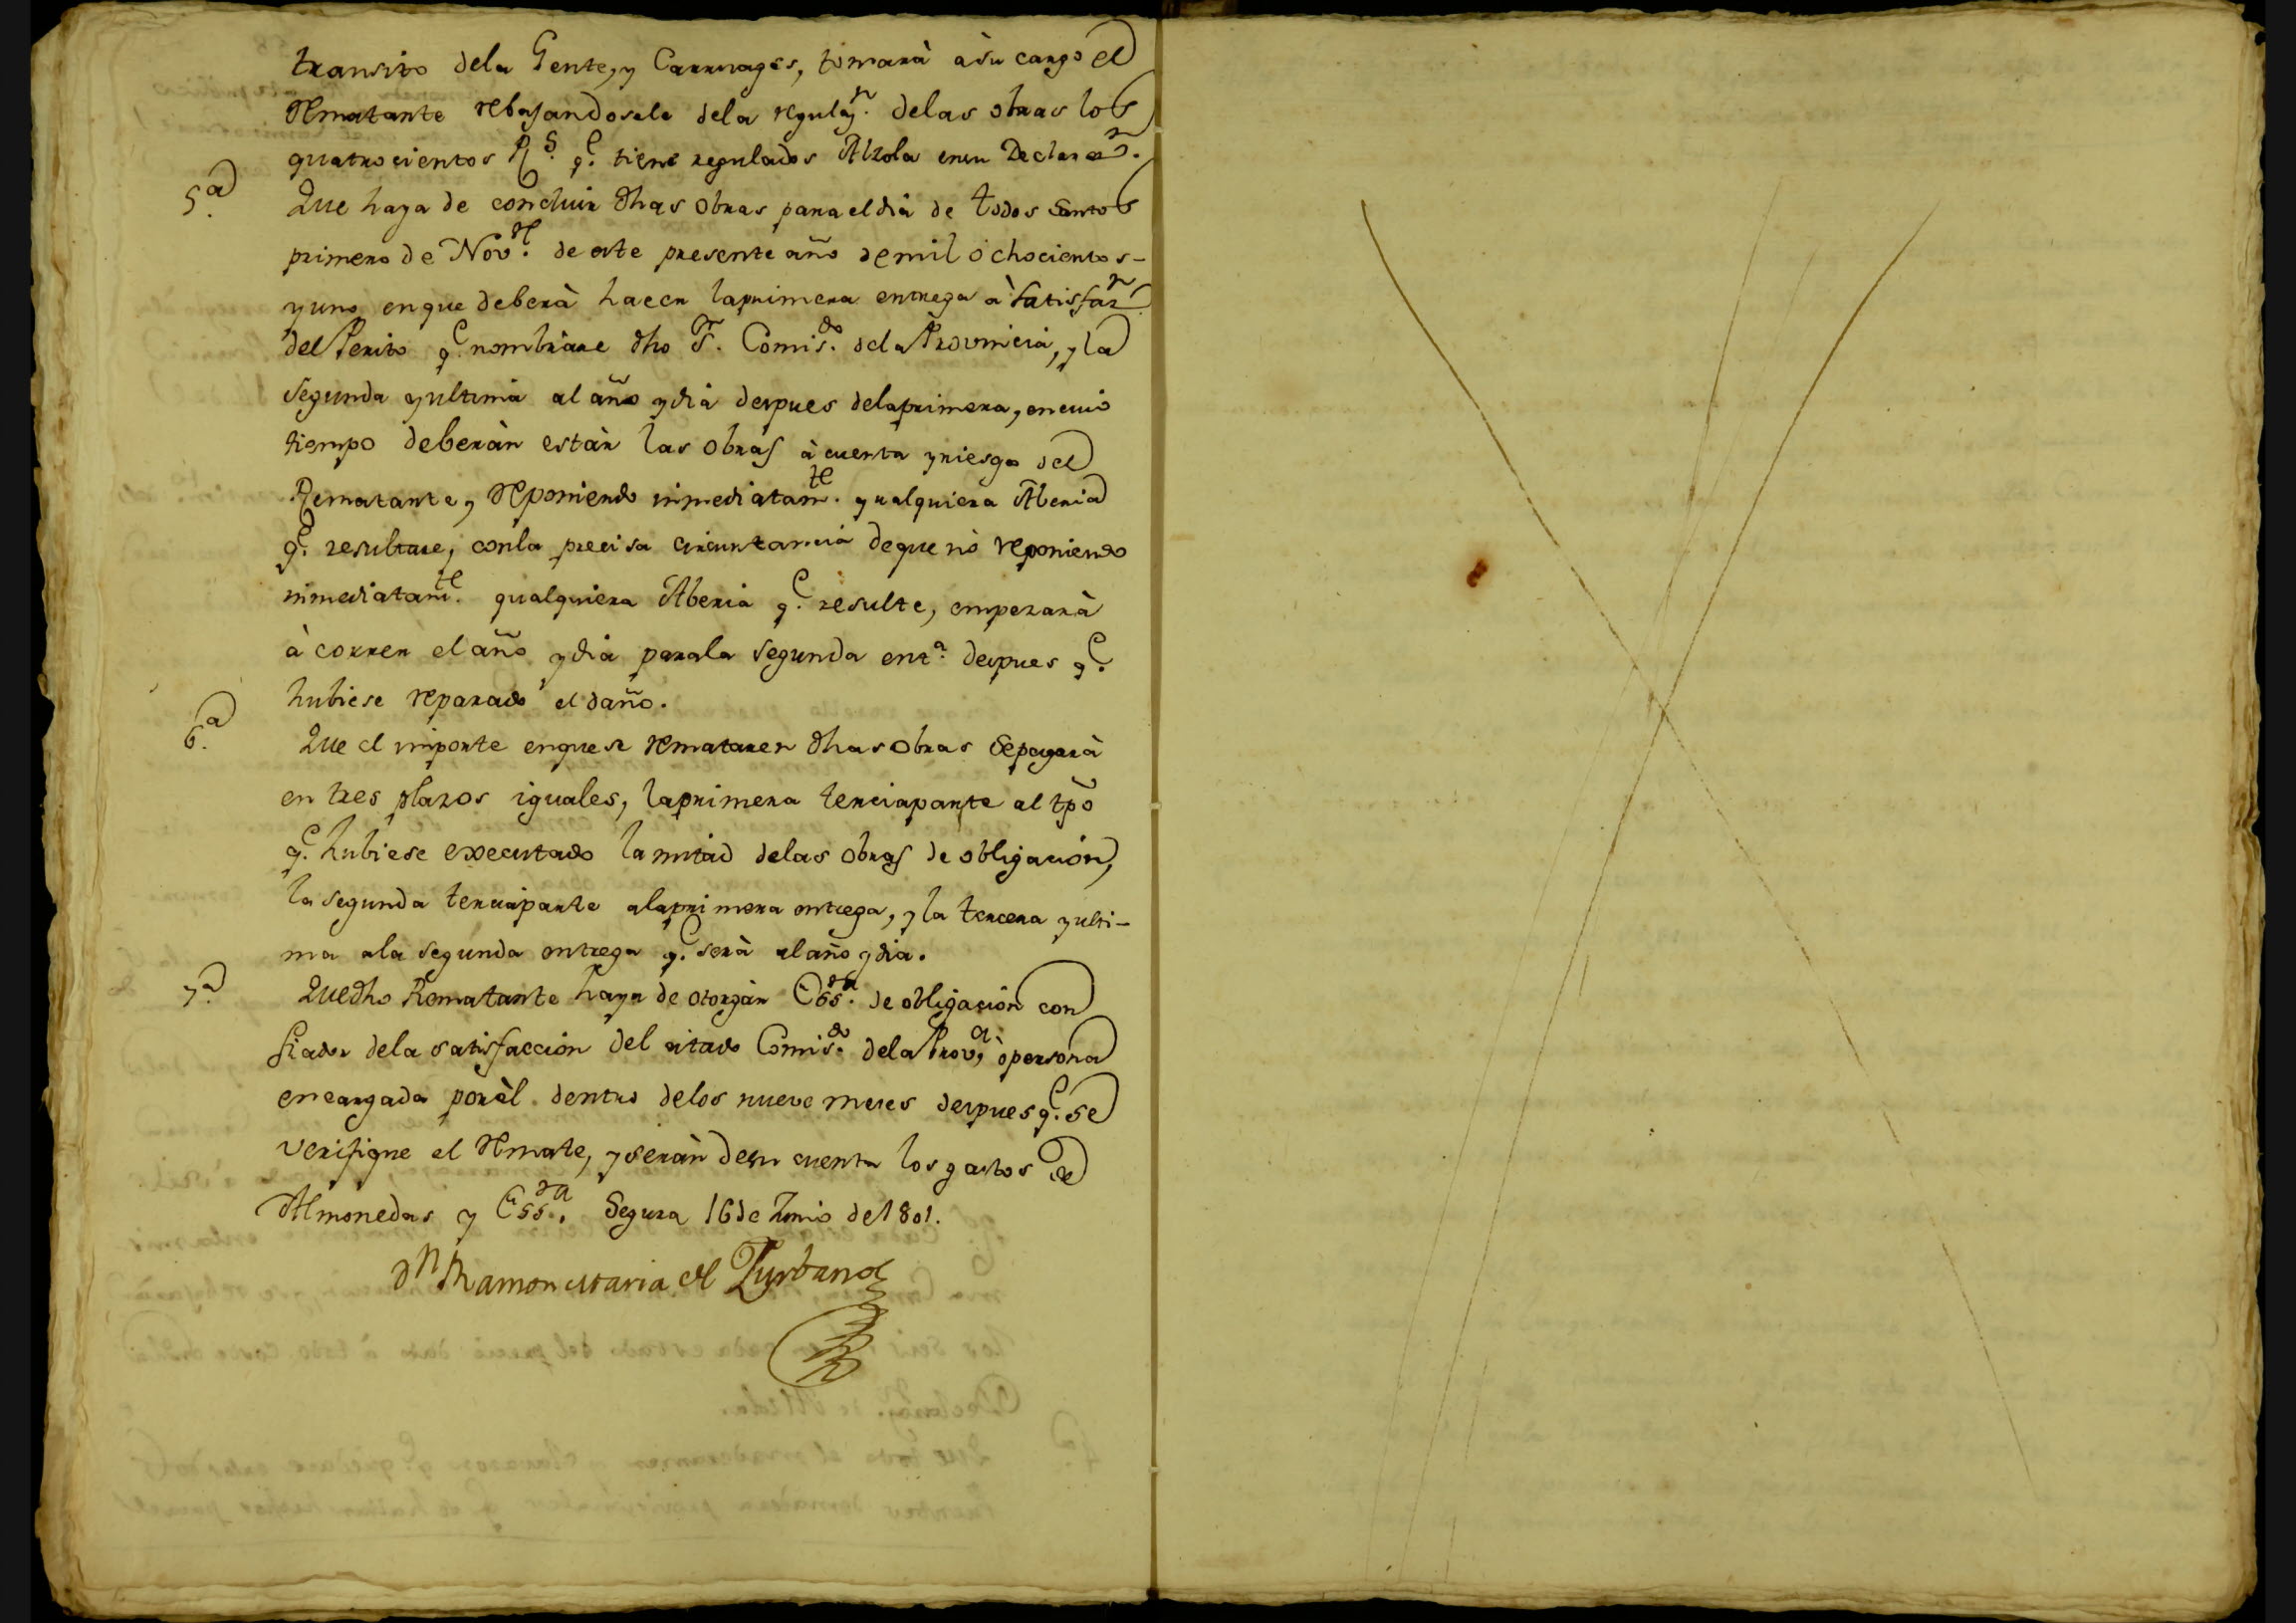 transito dela Gente, y Carruages, tomarà àsu cargo el
Rematante rebajandosele dela regulaz.n delas obras los
quatrocientos R.s q.e tiene regulados Alzola ensu Declaraz.n
5.a Que haya de concluir dhas obras para el dia de todos Santos
primero de Nov.re de este presente año de mil ochocientos-
y uno en que deberà hacer la primera entrega à satisfaz.n
del Perito q.e nombrare dho S.r Comis.do dela Provincia, y la
segunda y ultima al año y dia despues dela primera, en cuio
tiempo deberàn estàr las obras à cuenta y riesgo del
Rematante, reponiendo inmediatam.te qualquiera Aberia
q.e resultare, con la precisa circunstancia de que nò reponiendo
inmediatam.te qualquiera Aberia q.e resulte, empezarà
à correr el año y dia para la segunda ent.a despues q.e
hubiese reparado el daño.
6.a Que el importe en que se remataren dhas obras se pagarà
en tres plazos iguales, la primera tercia parte al tpõ
q.e hubiese executado la mitad delas obras de obligación,
la segunda tercia parte ala primera entrega, y la tercera y ulti-
ma ala segunda entrega q.e serà al año y dia.
7.a Que dho Rematante haya de otorgàr Ess.ra de obligación con
fiador dela satisfacción del citado Comis.do dela Prov.a, ò persona
encargada por èl dentro delos nueve meses despues q.e se
verifique el Remate, y seràn desu cuenta los gastos de
Almonedas y Ess.ra. Segura 16 de Junio de 1801.
Dn Ramon Maria de